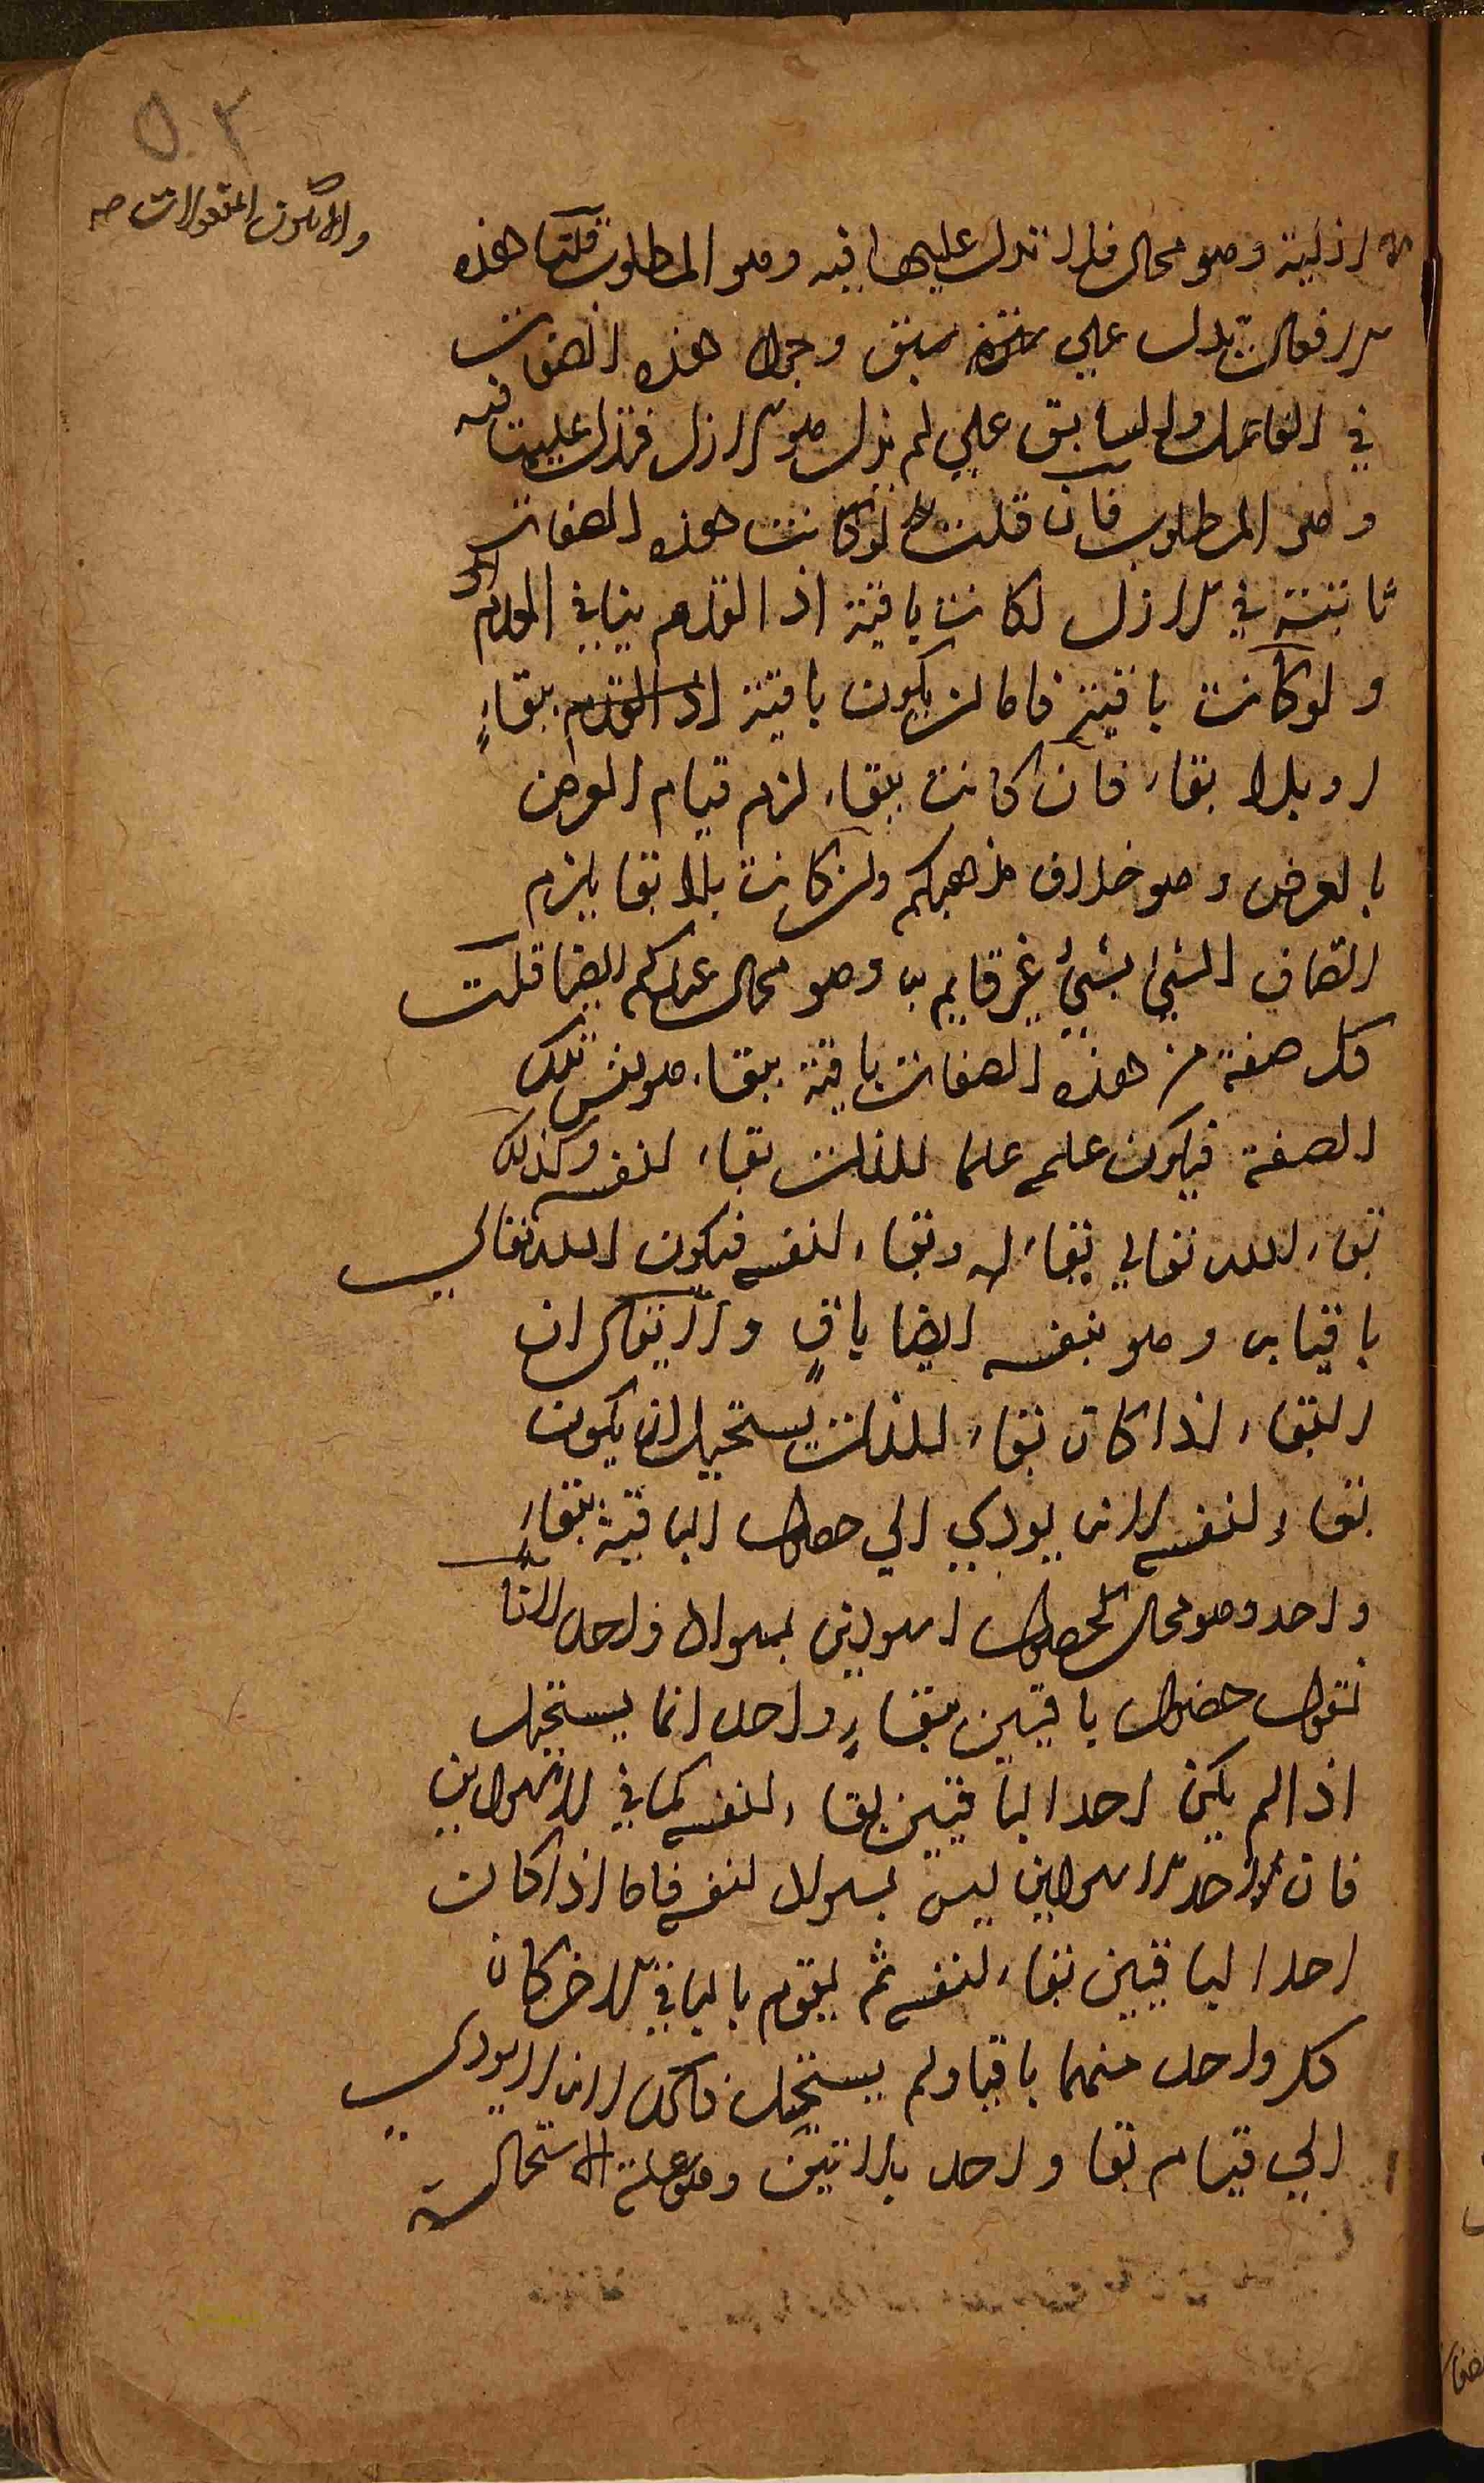 ٥٠٢
والا تكون المقولات صه
الازلية وهو محال فلا تدل عليها فيه وهو المطلوب قلنا هذه
الافعال تدل علي سبق وجود هذه الصفات
في الفاعل والسابق علي لم يزل هو الازل فتدل عليها فيه
وهو المطلوب فان قلت لو كانت هذه الصفات
ثابتة في الازل لكانت باقية اذ القدم ينافي العدم
ولو كانت باقية فاما ان يكون باقية اذ القدم ببقاءٍ
او بلا بقاء فان كانت ببقاء لزم قيام العرض
بالعرض وهو خلاف مذهبكم وان كانت بلا بقا يلزم
اتصاف الشئ بشئ غير قايم به وهو محال عندكم ايضا قلت
كل صفة من هذه الصفات باقية ببقاء هو نفس تلك
الصفة فيكون علمه علما للذات بقاء لنفسه وكذلك
بقاء الله تعالي بقاء له وبقاء لنفسه فيكون الله تعالي
باقيا به وهو بنفسه ايضا باقٍ ولا يقال ان
البقاء اذا كان بقاء للذات يستحيل ان يكون
بقاء لنفسه لانه يودي الي حصول الباقية ببقاءٍ
واحد وهو محال كحصول اسودين بسواد واحد لانا
نقول حصول باقيين ببقاءٍ واحد انما يستحيل
اذا لم يكن احد الباقيين بقاء لنفسه كما في الاسودين
فان احد الاسودين ليس بسواد لنفسه فاما اذا كان
احد الباقيين بقاء لنفسه ثم يقوم بالباقي الاخر كان
كل واحد منهما باقيا ولم يستحيل ذلك لانه لا يودي
الي قيام بقا واحد بذاتين وهو علة الاستحالة